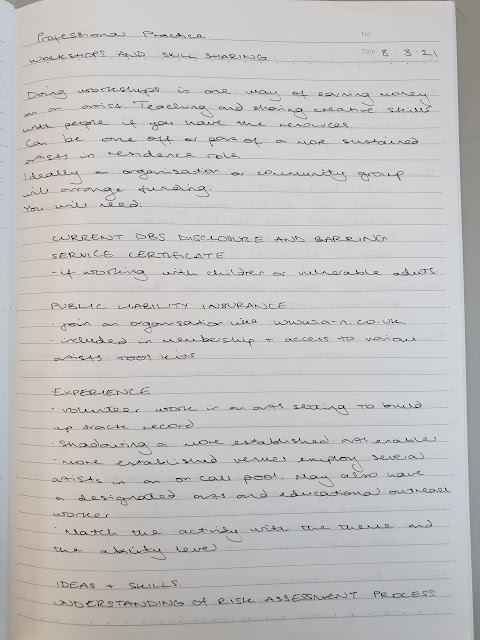 Professional Practice.
No.
WORKSHOPS AND SKILL SHARING
Date 8 · 3 · 21
Doing workshops is one way of earning money
as an artist. Teaching and sharing creative skills
with people if you have the resources.
Can be one off or part of a more sustained
artists in residence role.
Ideally an organisation or community group
will arrange funding.
You will need:
CURRENT DBS DISCLOSURE AND BARRING
SERVICE CERTIFICATE
- if working with children or vulnerable adults
PUBLIC LIABILITY INSURANCE
· join an organisation like www.a-n.co.uk
· included in membership + access to various
artists tool kits
EXPERIENCE
· volunteer work in an arts setting to build
up track record
· shadowing a more established arts enabler
· more established venues employ several
artists in an on call pool. May also have
a designated arts and educational outreach
worker
· Match the activity with the theme and
the ability level
IDEAS + SKILLS.
UNDERSTANDING OF RISK ASSESSMENT PROCESS